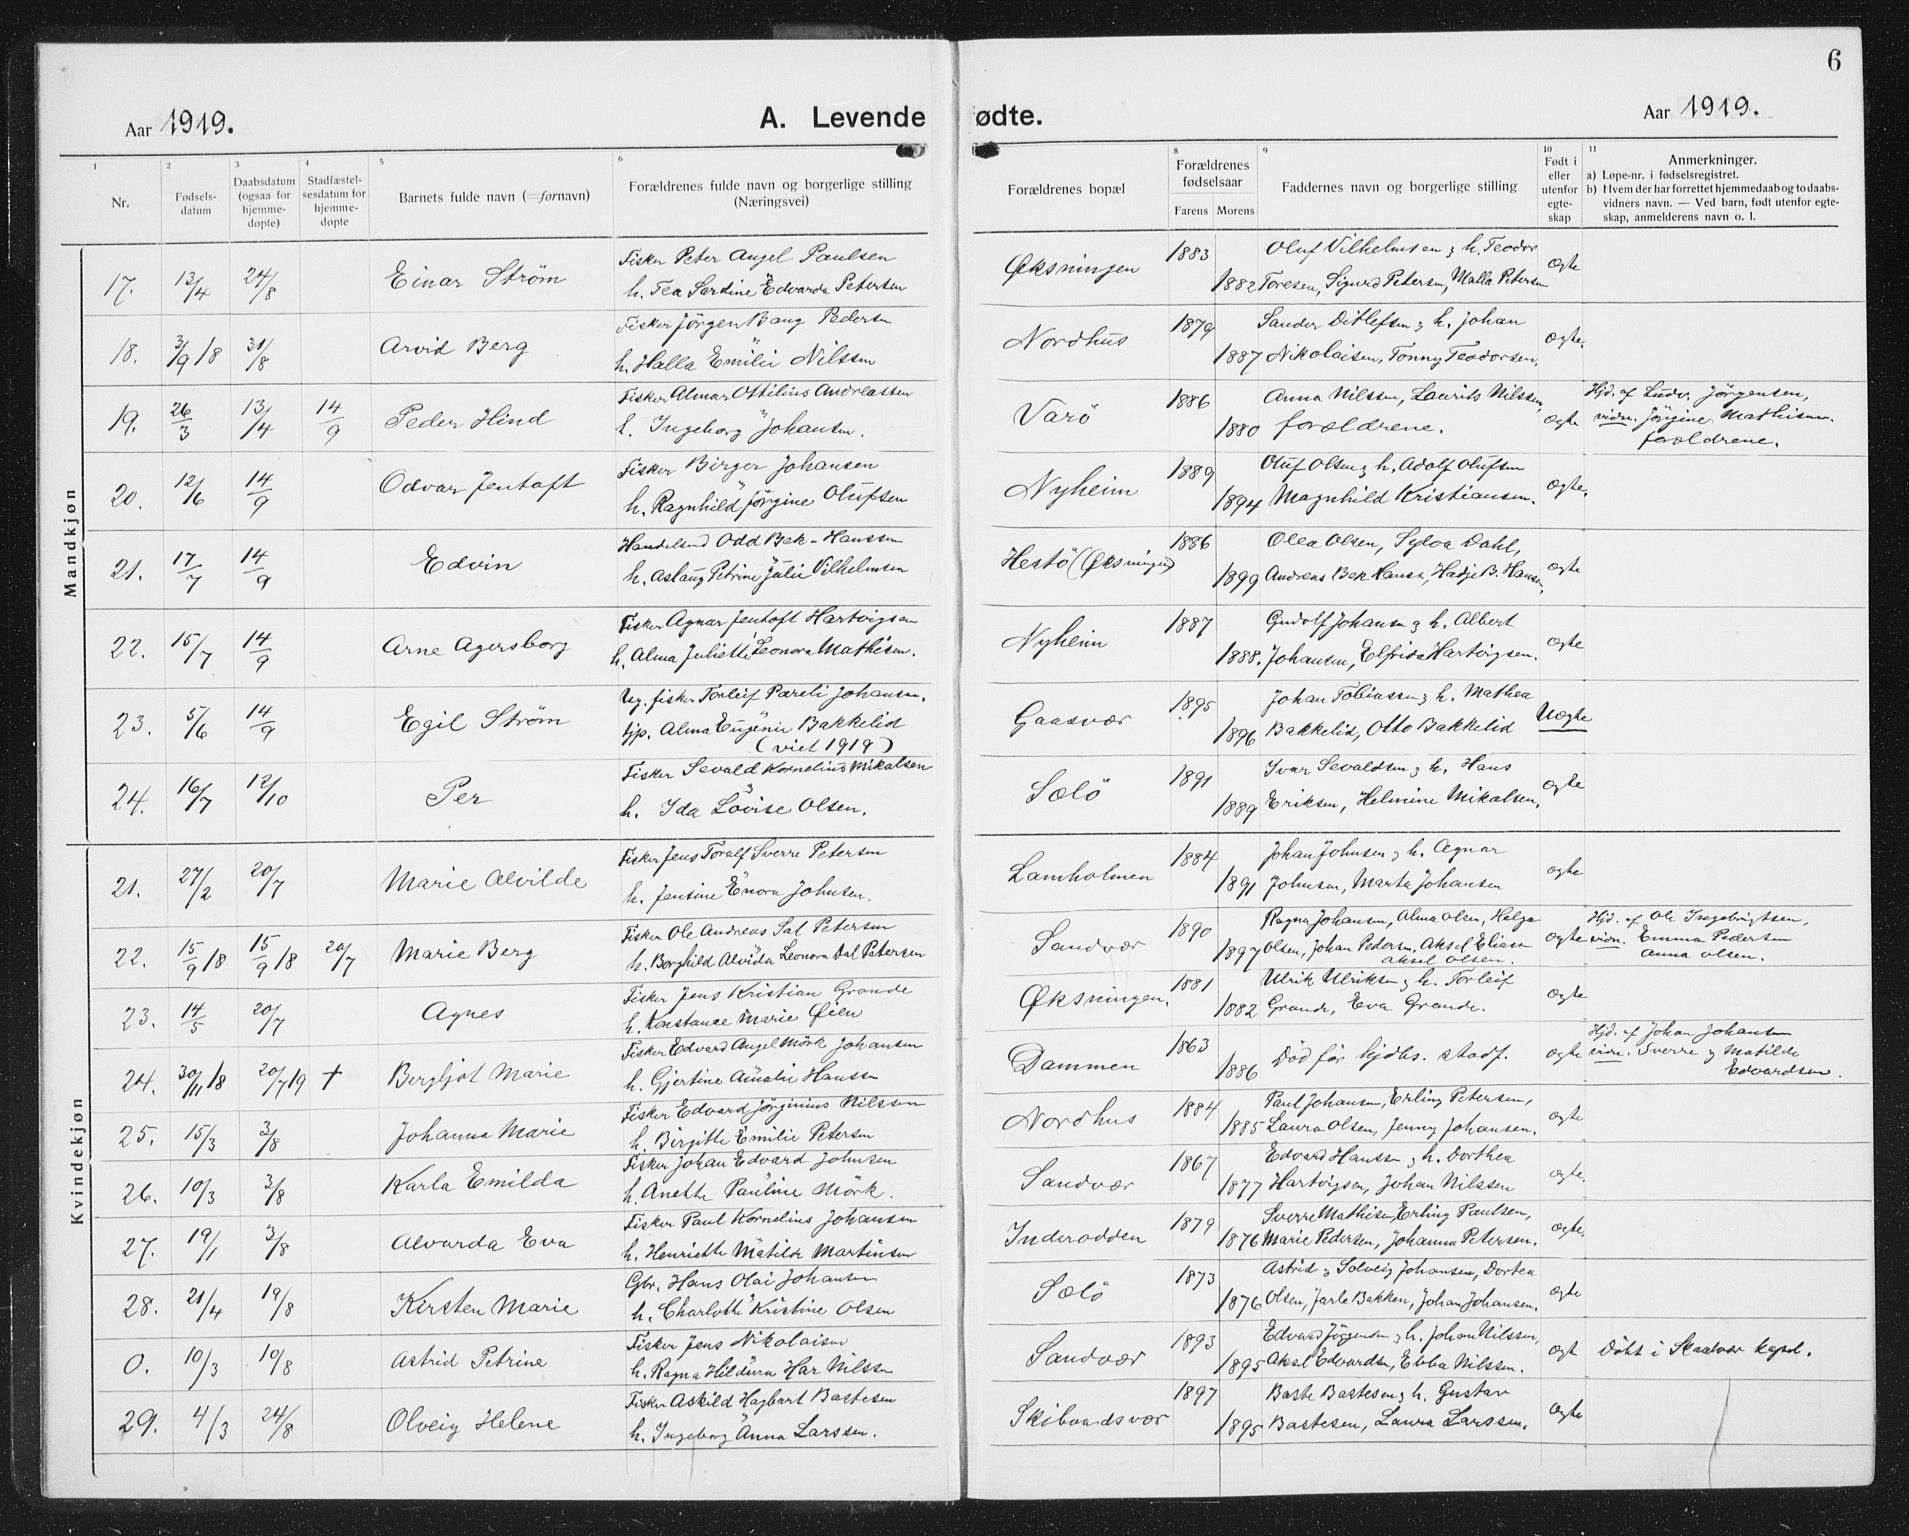 6
Aar 1919. A. Levende fødte. Aar 1919.
1 2 3 4 5 6 8 9 10 11
Nr. Fødsels-datum Daabsdatum (ogsaa for hjemme-døpte) Stadfæstel-sesdatum for hjemme-døpte Barnets fulde navn (=fornavn) Forældrenes fulde navn og borgerlige stilling (Næringsvei) Forældrenes bopæl Forældrenes fødselsaar Farens Morens Faddernes navn og borgerlige stilling Født i eller utenfor egte-skap Anmerkninger.
a) Løpe-nr. i fødselsregistret.
b) Hvem der har forrettet hjemmedaab og to daabs-vidners navn. — Ved barn, født utenfor egte-skap, anmelderens navn o. l.
Mandkjøn
17. 13/4 24/8 Einar Strøm Fisker Peter Angel Paulsen Øksningen 1883 Oluf Vilhelmsen & h. Teodor ægte
h. Tea Sardine Edvarda Petersen 1882 Toresen, Sigurd Petersen, Malla Petersen
18. 3/9 18 31/8 Arvid Berg Fisker Jörgen Bang Pedersen Nordhus 1879 Sander Ditlefsen & h. Johan ægte.
h. Halla Emilie Nilssen 1887 Nikolaisen, Tonny Teodorsen.
19. 26/3 13/4 14/9 Peder Hind Fisker Almar Ottilius Andreassen Varö 1886 Anna Nilssen, Laurits Nilssen, ægte Hjd. af Ludv. Jörgensen,
h. Ingeborg Johansen. 1880 forældrene. vidn. Jörgine Mathisen.
forældrene.
20. 12/6 14/9 Odvar Jentoft Fisker Birger Johansen Nyheim 1889 Oluf Olsen & h. Adolf Olufsen ægte.
h. Ragnhild Jörgine Olufsen 1894 Magnhild Kristiansen.
21. 17/7 14/9 Edvin Handelsmd Odd Bek-Hanssen Hestö (Øksningen) 1886 Olea Olsen, Sylva Dahl, ægte
h. Aslaug Petrine Julie Vilhelmsen 1899 Andreas Bek Hanss, Hadje B. Hansen,
22. 15/7 14/9 Arne Agersborg Fisker Agnar Jentoft Hartvigsen Nyheim 1887 Gudolf Johansen & h. Albert ægte
h. Alma Juliette Leonora Mathisen. 1888. Johansen, Elfrida Hartvigsen.
23. 5/6 14/9 Egil Strøm Ug. fisker Torleif Pareli Johansen. Gaasvær 1895 Johan Tobiassen & h. Mathea Uægte
tjp. Alma Eugenie Bakkelid 1896 Bakkelid, Otto Bakkelid
(viet 1919)
24. 16/7 12/10 Per Fisker Sevald Kornelius Mikalsen Sælö 1891 Ivar Sevaldsen & h. Hans ægte
h. Ida Lovise Olsen. 1889 Eriksen, Helmine Mikalsen,
Kvindekjøn
21. 27/2 20/7 Marie Alvilde Fisker Jens Toralf Sverre Petersen Lamholmen 1884 Johan Johnsen & h. Agnar ægte
h. Jensine Enora Johnsen. 1891 Johnsen, Marta Johansen
22. 15/9 18 15/9 18 20/7 Marie Berg Fisker Ole Andreas Sal Petersen Sandvær 1890 Ragna Johansen, Alma Olsen, Helga ægte Hjd. af Ole Ingebrigtsen,
h. Borghild Alvida Leonora Dal Petersen 1897 Olsen, Johan Pedersen, Aksel Eliasen vidn. Emma Pedersen
Aksel Olsen. Anna Olsen.
23. 14/5 20/7 Agnes Fisker Jens Kristian Grande Øksningen. 1881 Ulrik Ulriksen & h. Torleif ægte
h. Konstance Marie Øien 1882 Grande, Eva Grande.
24. 30/11 18 20/7 19 + Bergljot Marie Fisker Edvard Angel Mörk Johansen Dammen 1863 Död før hjdbs. stadf. ægte Hjd. af Johan Johansen
h. Gjertine Amalie Hanssen 1886 vidn. Sverre & Matilde
Edvardsen.
25. 15/3 3/8 Johanna Marie Fisker Edvard Jörginius Nilssen Nordhus 1884 Paul Johansen, Erling Petersen, ægte
h. Birgitte Emilie Petersen 1885 Laura Olsen, Jenny Johansen.
26. 10/3 3/8 Karla Emilda Fisker Johan Edvard Johnsen Sandvær 1867 Edvard Hanssen & h. Dorthea ægte.
h. Anette Pauline Mörk. 1877 Hartvigsen, Johan Nilssen
27. 19/1 3/8 Alvarda Eva Fisker Paul Kornelius Johansen Inderodden 1879 Sverre Mathisen, Erling Paulsen, ægte.
h. Henriette Matilde Martinsen 1876 Marie Pedersen, Johanna Petersen.
28. 21/4 19/8 Kirsten Marie Gbr. Hans Olai Johansen Sælö 1873 Astrid & Solveig Johansen, Dortea ægte
h. Charlotte Kristine Olsen 1876 Olsen, Jarle Bakken, Johan Johansen.
0. 10/3 10/8 Astrid Petrine Fisker Jens Nikolaisen Sandvær 1893 Edvard Jörgensen & h. Johan Nilssen, ægte Döbt i Skaalvær kapel.
h. Ragna Hildura Har Nilssen 1895 Aksel Edvardsen, Ebba Nilssen.
29. 4/3 24/8 Olveig Helene Fisker Askild Hagbart Bastesen Skibaadsvær 1897 Baste Bastesen & h. Gustav ægte
h. Ingeborg Anna Larssen. 1895 Bastesen, Laura Larssen.